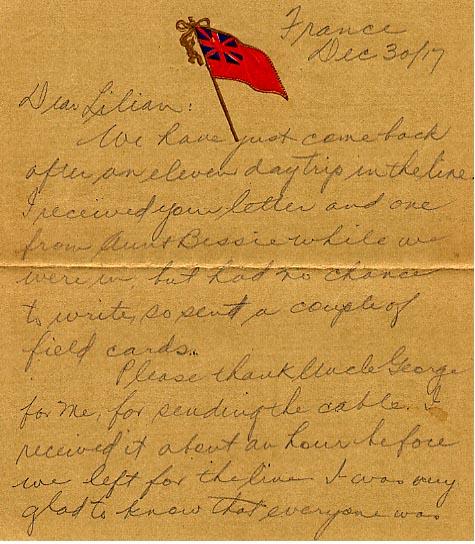 France
Dec 30/17
Dear Lilian:
We have just come back
after an eleven day trip in the line.
I received your letter and one
from Aunt Bessie while we
were in, but had no chance
to write, so sent a couple of
field cards.
Please thank Uncle George
for me, for sending the cable. I
received it about an hour before
we left for the line. I was very
glad to know that everyone was